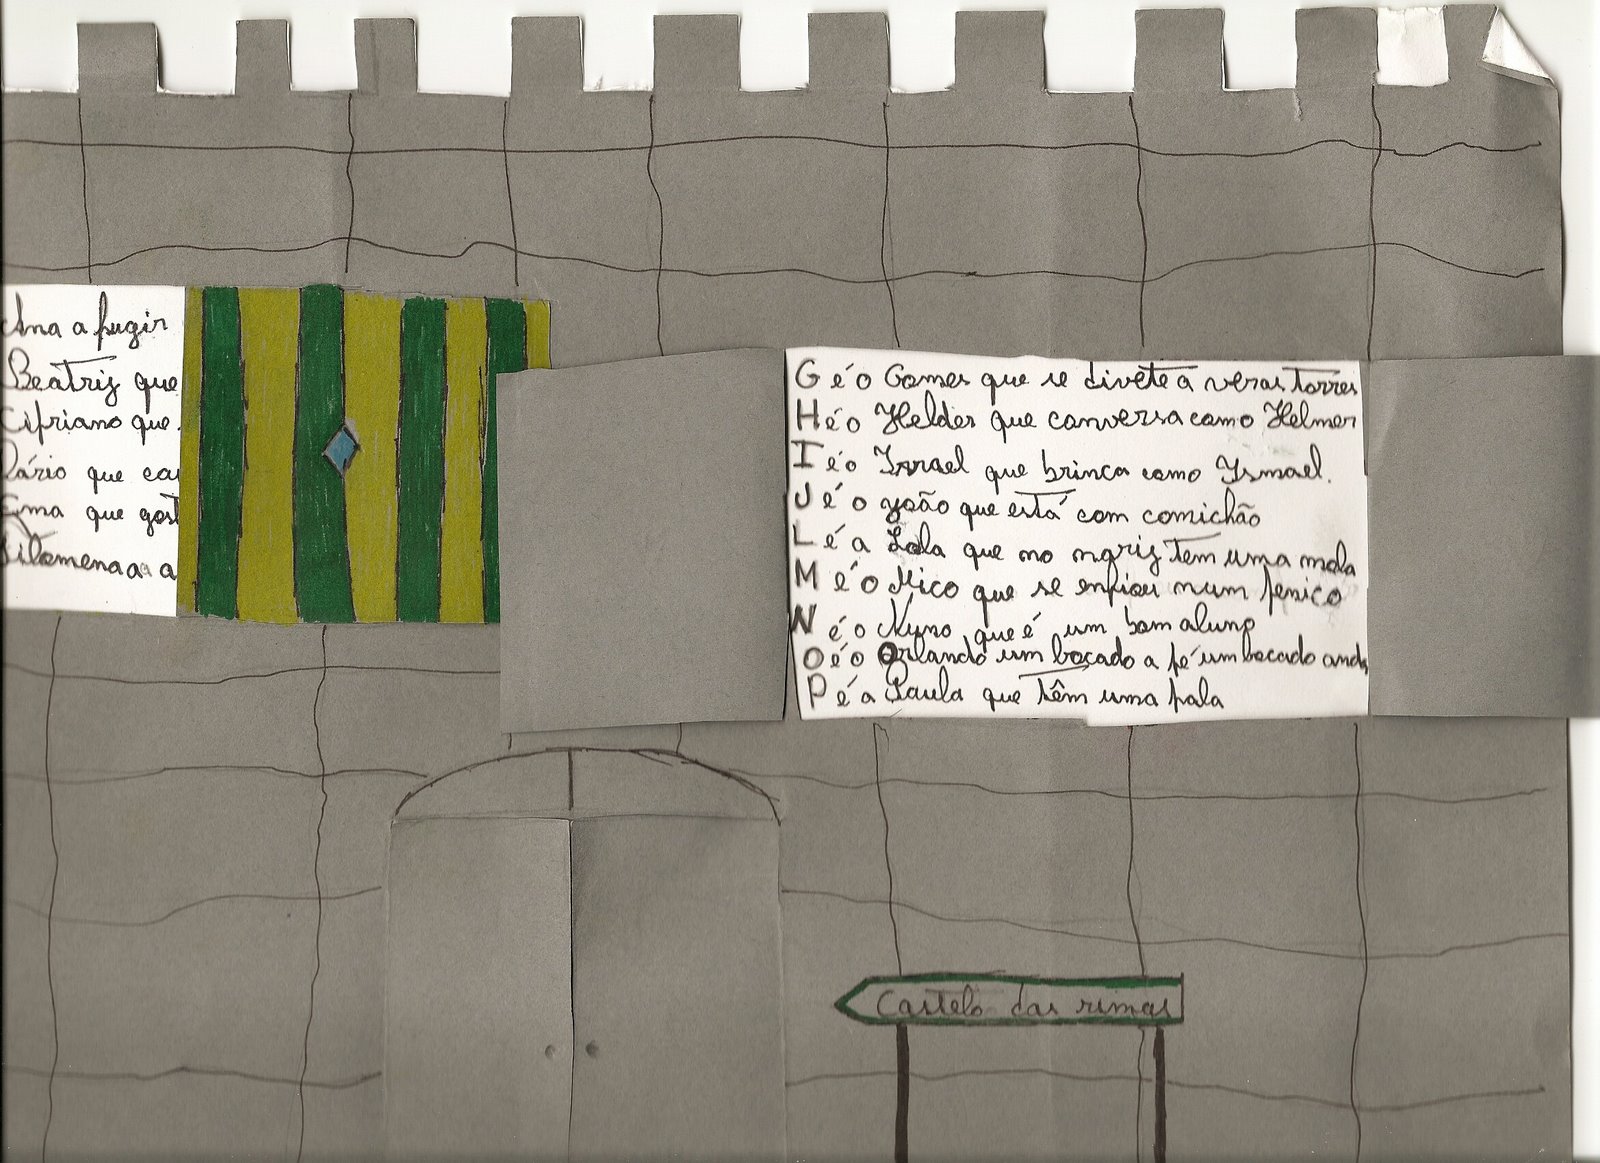 Ana a fugir
Beatriz que
Cipriano que
Dário que ca
Ema que gost
Filomena a a
G é o Gomes que se divete a ver as torres
H é o Helder que conversa como Helmer
I é o Israel que brinca como Ysmael.
J é o João que está com comichão
L é a Lola que no nariz tem uma mola
M é o Mico que se enfiou num penico
N é o Nuno que é um bom aluno
O é o Orlando um bocado a pé um bocado anda
P é a Paula que têm uma pala
Castelo das rimas